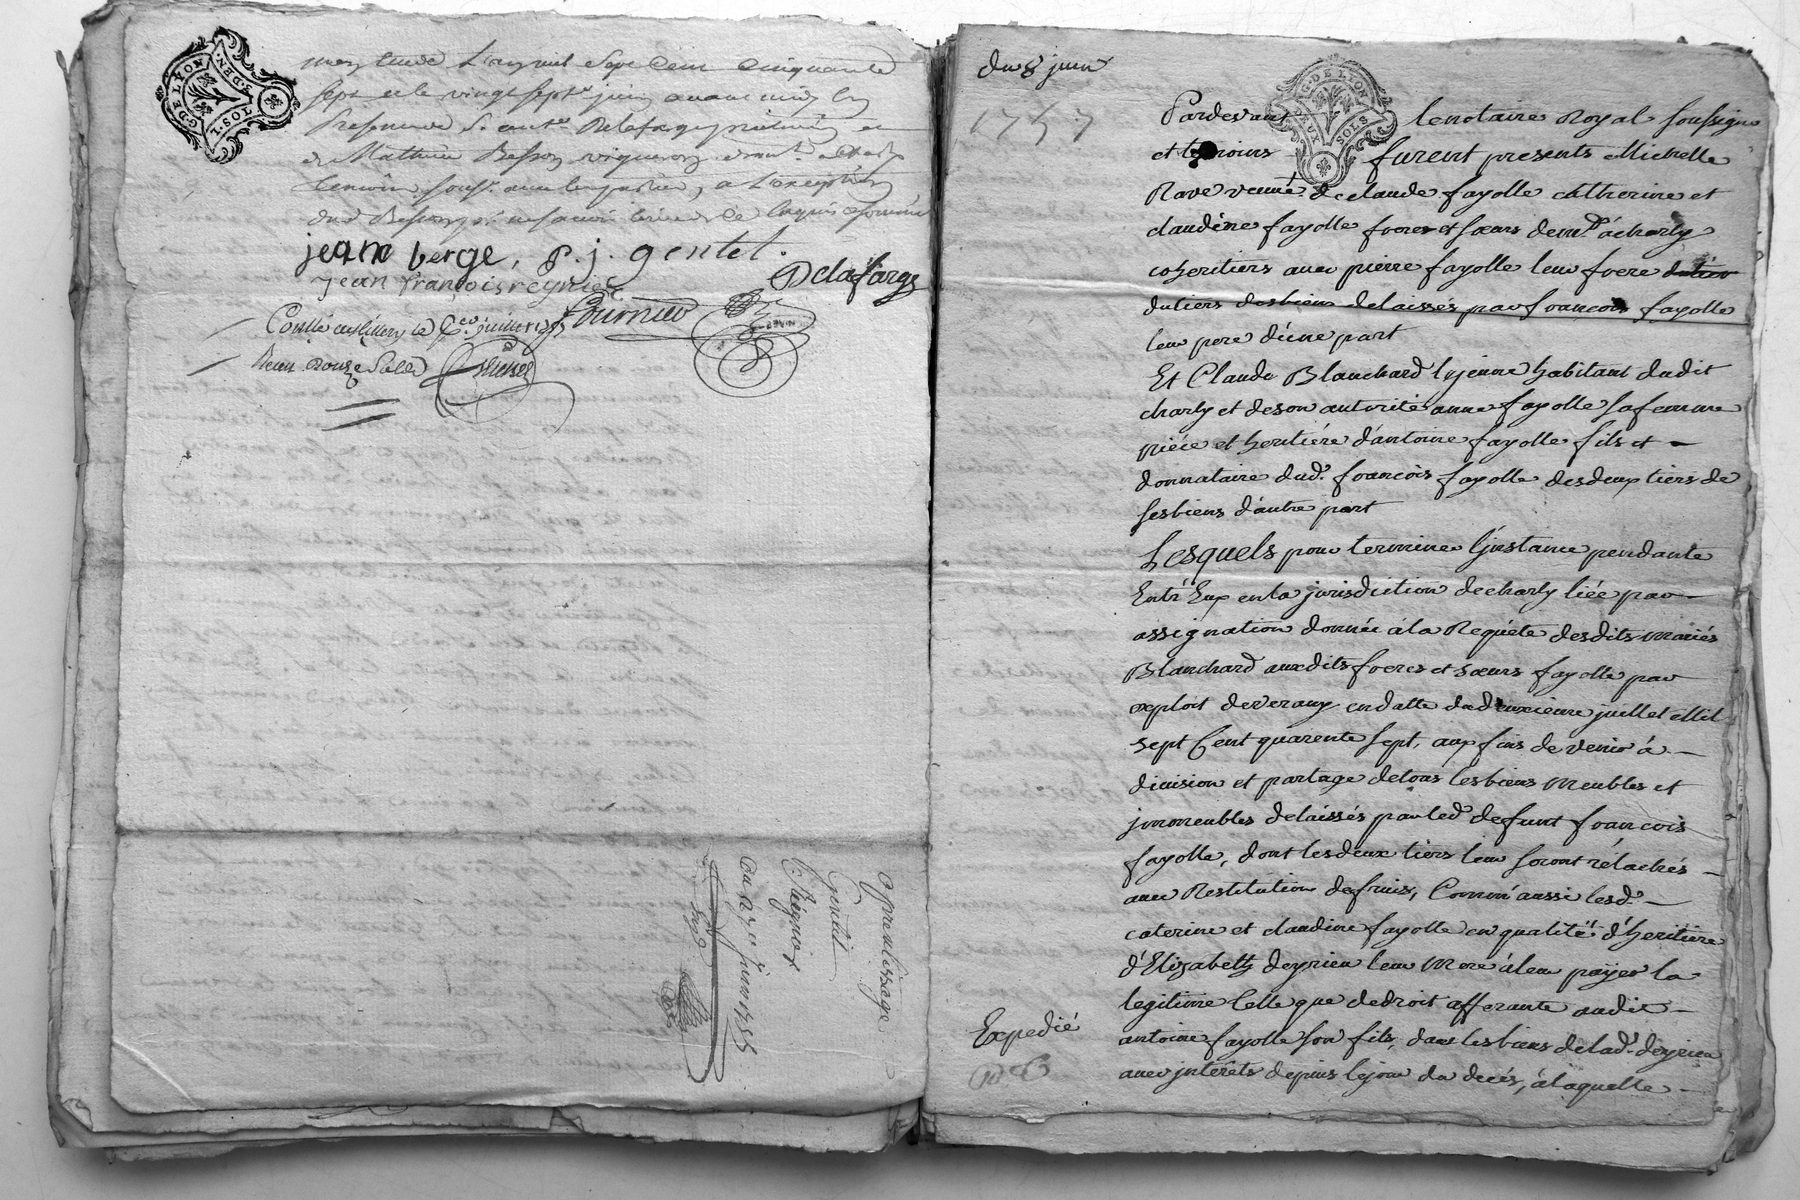 G. DE LYON
DEN.
I.SOL
mil sept cent cinquante
sept et le vingt sept juin avant midy en
presence de
et Mathieu Besson vigneron
temoins
jean berge, p. j. gentel.
jean françois reynier
Delafarge
Fournier
Conllé juillet 1757
Reçu douze sols
apprentissage
Gentil
Reignier
Du 27e juin 1757
du 8 juin
1757
G. DE LYON
SOLS
Pardevant le notaire Royal soussigné
et temoins furent presents Michelle
Rave veuve de claude fayolle catherine et
claudine fayolle freres et sœurs dem.t à charly
coheritiers avec pierre fayolle leur frere
du tiers des biens delaissés par francois fayolle
leur pere d'une part
Et Claude Blanchard le jeune habitant dudit
charly et de son autorité anne fayolle sa femme
niéce et heritiére d'antoine fayolle fils et
donnataire dud. françois fayolle des deux tiers de
ses biens d'autre part
Lesquels pour terminer l'instance pendante
Entr'Eux en la jurisdiction de charly liée par
assignation donnée à la Requéte desdits mariés
Blanchard auxdits freres et sœurs fayolle par
exploit de veraux en datte du deuxieme juillet Mil
sept Cent quarente sept, aux fins de venir à
division et partage de tous les biens meubles et
immeubles delaissés par led. defunt francois
fayolle, dont les deux tiers leur seront rélachés
avec Restitution de fruis, Comm'aussi lesd.
caterine et claudine fayolle en qualité d'heritiere
d'Elizabeth deyrieu leur Mere à leur payer la
legitime telle que de droit afferante audit
antoine fayolle son fils, dans les biens de lad. deyrieu
avec intérêts depuis le jour du decés, à laquelle
Expedié